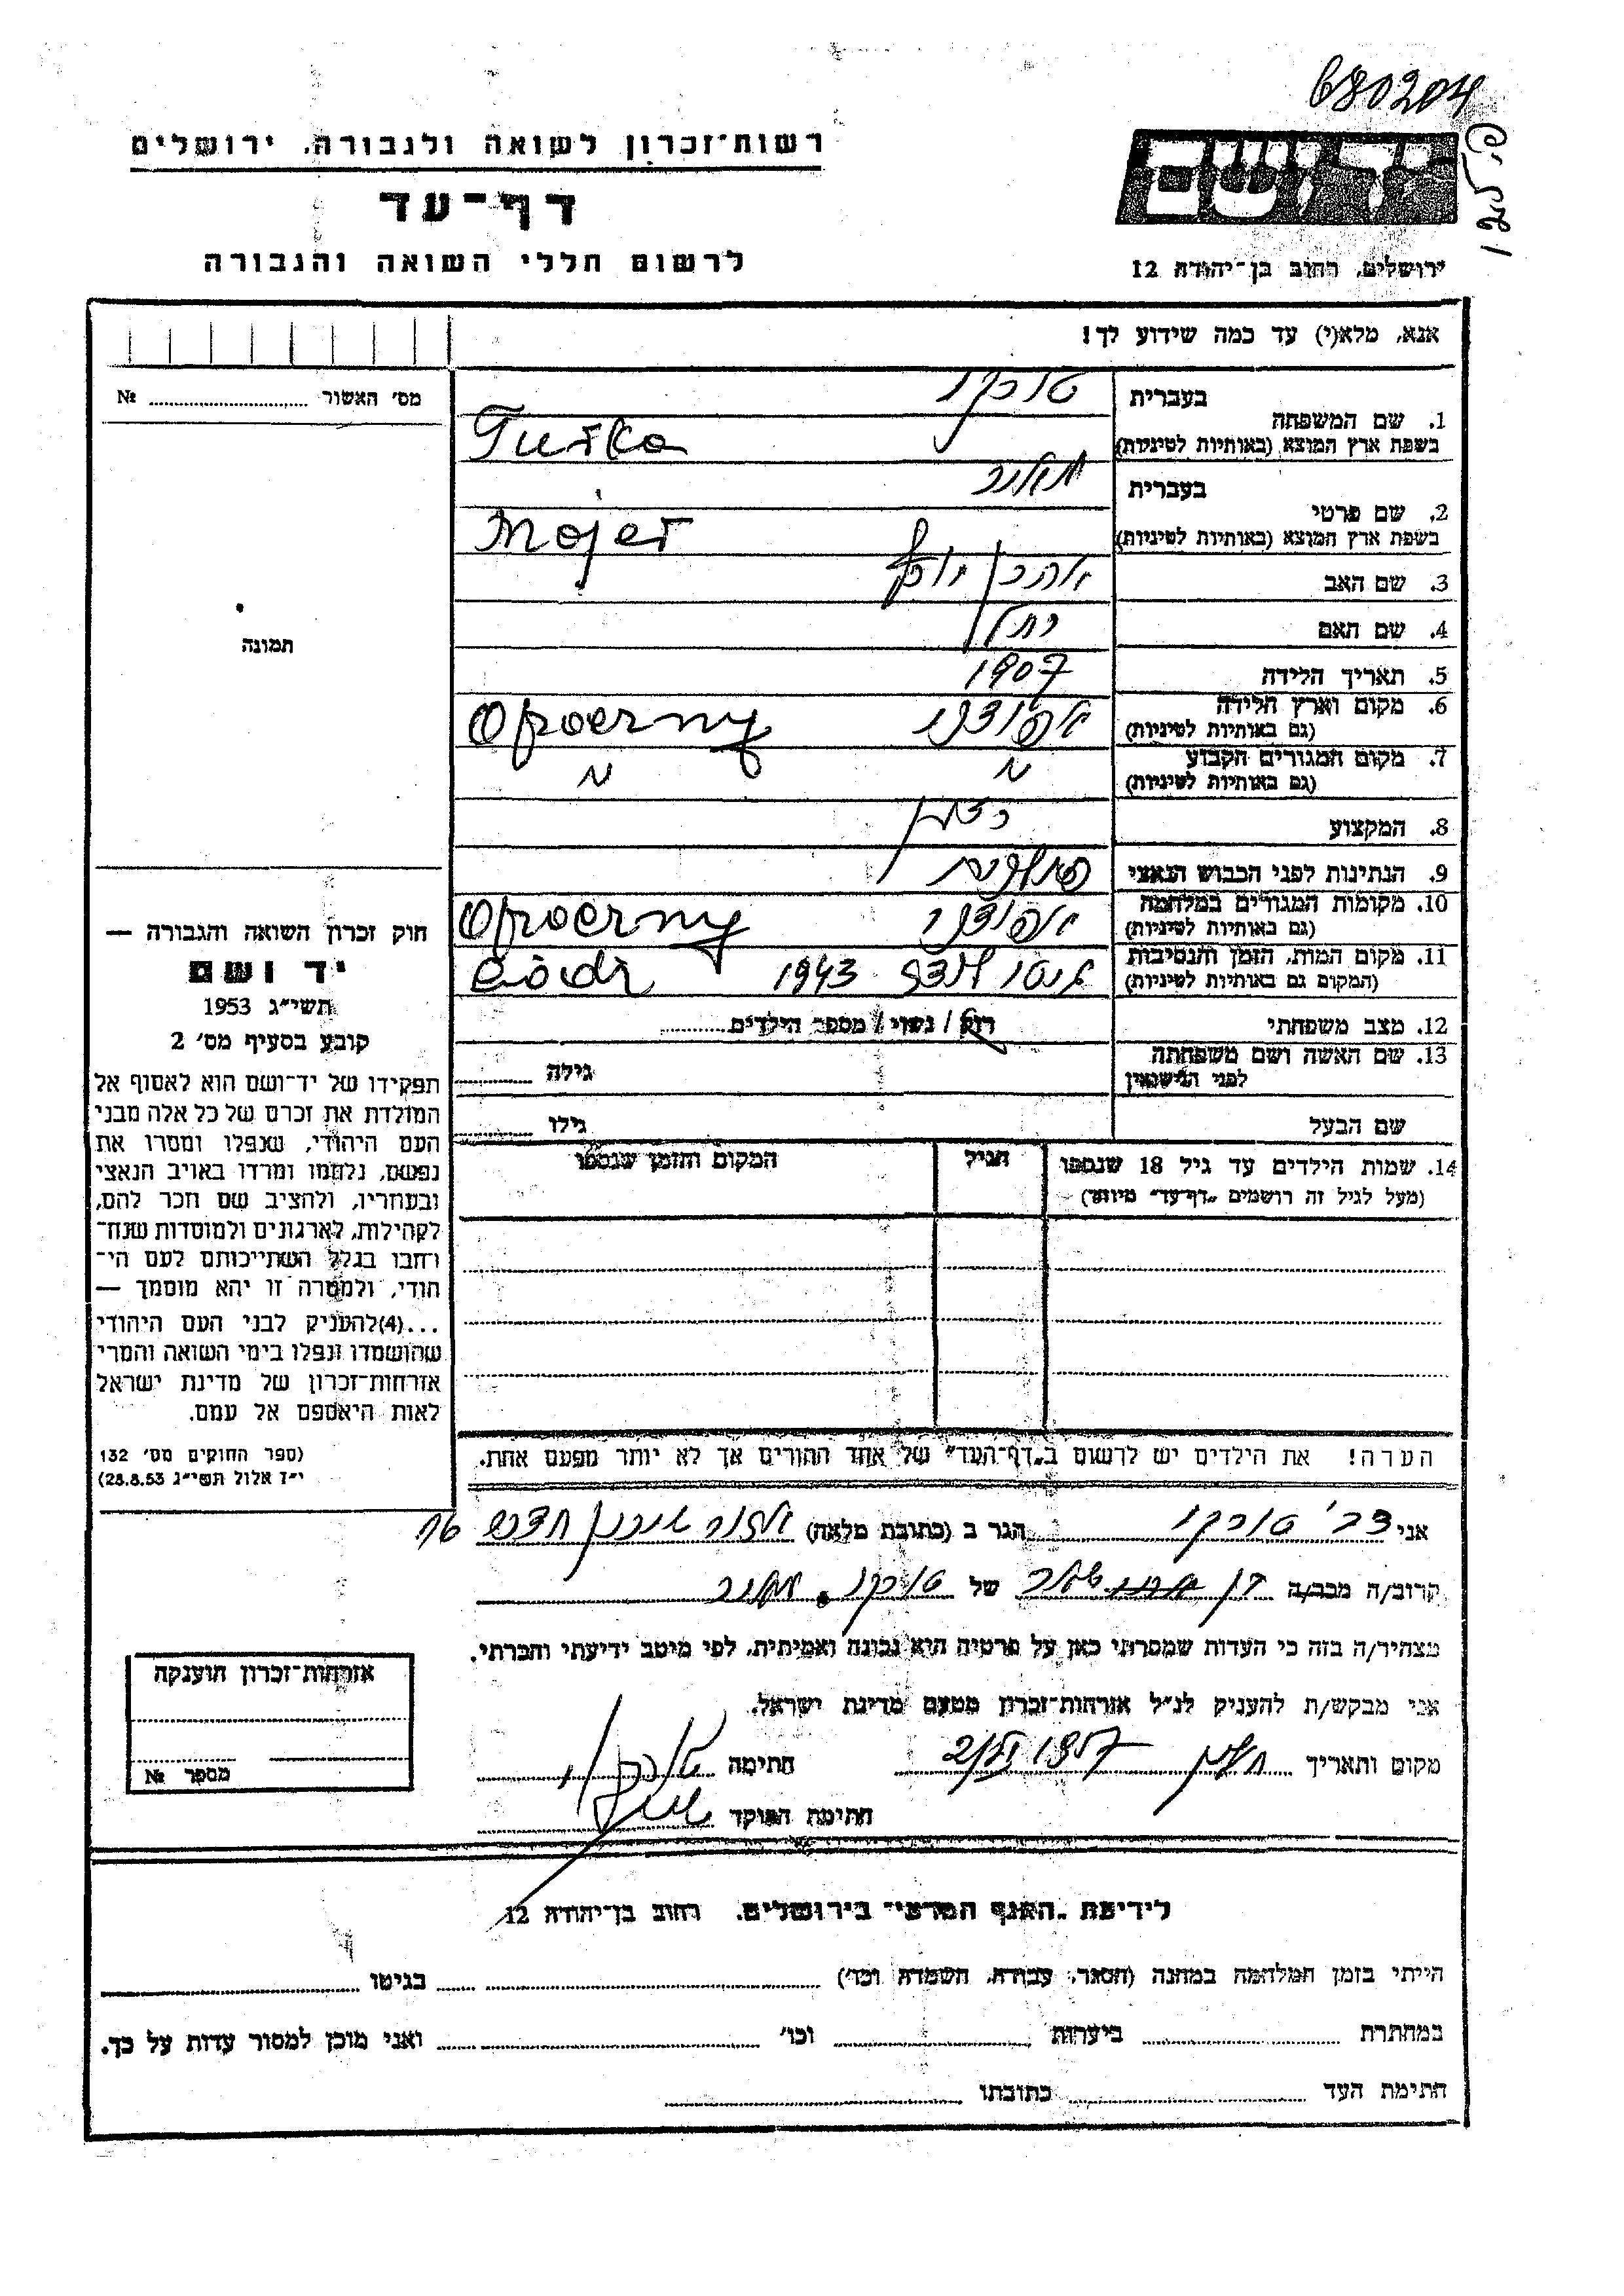 680204
רשות־זכרון לשואה ולגבורה, ירושלים
דף־עד
לרשום חללי השואה והגבורה
יד ושם
ירושלים, רחוב בן־יהודה 12
אנא, מלא(י) עד כמה שידוע לך!
מס׳ האשור № 
בעברית טורקו
1. שם המשפחה
בשפת ארץ המוצא (באותיות לטיניות) Turko
בעברית מאיר
2. שם פרטי
בשפת ארץ המוצא (באותיות לטיניות) Majer
3. שם האב אהרן יוסף
4. שם האם
5. תאריך הלידה 1907
6. מקום וארץ הלידה אופוצנו Opoczny
(גם באותיות לטיניות)
7. מקום המגורים הקבוע " "
(גם באותיות לטיניות)
8. המקצוע
9. הנתינות לפני הכבוש הנאצי פולנית
10. מקומות המגורים במלחמה אופוצנו Opoczny
(גם באותיות לטיניות)
11. מקום המות, הזמן והנסיבות גיטו לודז 1943 Łódź
(המקום גם באותיות לטיניות)
12. מצב משפחתי רוק / נשוי / מספר הילדים
13. שם האשה ושם משפחתה
לפני הנישואין גילה
שם הבעל גילו
14. שמות הילדים עד גיל 18 שנספו הגיל המקום והזמן שנספו
(מעל לגיל זה רושמים „דף־עד" מיוחד)
הערה! את הילדים יש לרשום ב„דף־העד" של אחד ההורים אך לא יותר מפעם אחת.
תמונה
חוק זכרון השואה והגבורה —
יד ושם
תשי״ג 1953
קובע בסעיף מס׳ 2
תפקידו של יד־ושם הוא לאסוף אל
המולדת את זכרם של כל אלה מבני
העם היהודי, שנפלו ומסרו את
נפשם, נלחמו ומרדו באויב הנאצי
ובעוזריו, ולהציב שם וזכר להם,
לקהילות, לארגונים ולמוסדות שנח־
רחבו בגלל השתייכותם לעם הי־
הודי, ולמטרה זו יהא מוסמך —
...(4)להעניק לבני העם היהודי
שהושמדו ונפלו בימי השואה והמרי
אזרחות־זכרון של מדינת ישראל
לאות היאספם אל עמם.
(ספר החוקים מס׳ 132
י״ז אלול תשי״ג 28.8.53)
אני צבי טורקו הגר ב (כתובת מלאה) אזור שיכון חדש 76
קרוב/ה מכר/ה של טורקו מאיר
מצהיר/ה בזה כי העדות שמסרתי כאן על פרטיה היא נכונה ואמיתית, לפי מיטב ידיעתי והכרתי.
אני מבקש/ת להעניק לנ״ל אזרחות־זכרון מטעם מדינת ישראל.
מקום ותאריך חתימה טורקו
חתימת הפוקד
אזרחות־זכרון הוענקה
מספר №
לידיעת „האגף המדעי" בירושלים, רחוב בן־יהודה 12
הייתי בזמן המלחמה במחנה (הסגר, עבודה, השמדה וכו׳) בגיטו
במחתרת ביערות וכו׳ ואני מוכן למסור עדות על כך.
חתימת העד כתובתו